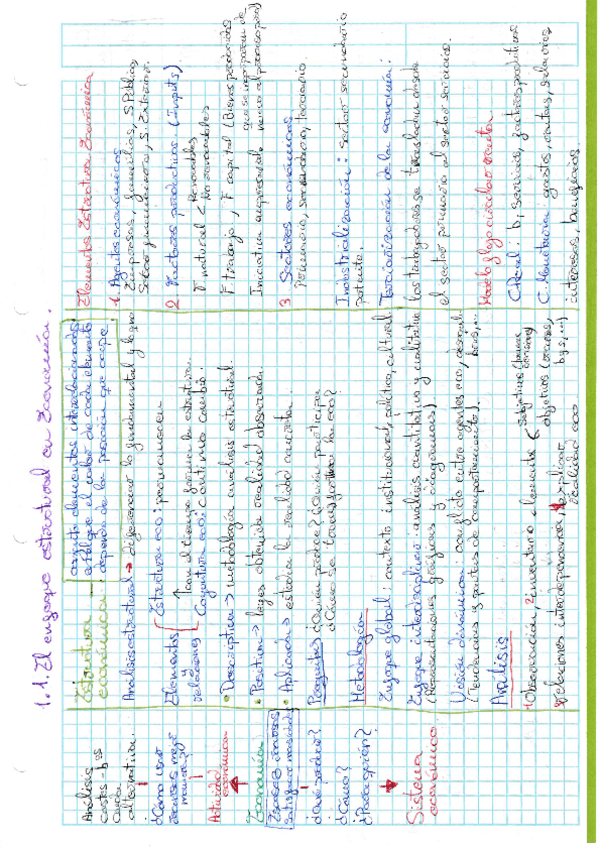 1.1. El enfoque estructural en Economía.
Análisis
costes - b^os
coste
alternativo.
¿Cómo usar
recursos mejor
manera?
Actividad
económica
Economía
Recursos escasos
Satisfacer necesidades
¿Qué producir?
¿Cómo?
¿Para quién?
Sistema
económico
Estructura
económica
conjunto elementos interrelacionados
en el que el valor de cada elemento
depende de la posición que ocupe.
Análisis estructural → diferenciar lo fundamental y lo que
Elementos
relaciones
Estructura eco: permanecen
con el tiempo forman la estructura
Coyuntura eco: continuo cambio.
• Descriptiva → metodología análisis estructural.
• Positiva → leyes obtenidas realidad observación.
• Aplicada → estudia la realidad concreta.
Preguntas ¿Quién produce? ¿Quién participa?
¿Cómo se transforma la eco?
Metodología
Enfoque global: contexto institucional, político, cultural
Enfoque interdisciplinar: análisis cuantitativo y cualitativo
(Representaciones gráficas y diagramas)
Visión dinámica: conflicto entre agentes eco,
(Tendencias y pautas de comportamiento).
Análisis
1 Observación, 2 inventario elementos
subjetivos
objetivos
3 relaciones interdependencia, explicar
realidad eco
Elementos Estructura Económica
1. Agentes económicos
Empresas, familias, S. Público,
Sector financiero, S. Exterior.
2 Factores productivos (Inputs)
F natural < Renovables
No renovables
F trabajo, F capital (Bienes producidos
que se incorporan de
nuevo al proceso prod)
Iniciativa empresarial
3 Sectores económicos
Primario, secundario, terciario.
Industrialización: sector secundario
potente.
Terciarización de la economía:
los trabajadores se trasladan desde
el sector primario al sector servicios.
Modelo flujo circular renta
C Real: b, servicios, factores productivos
C. Monetaria: gastos, rentas, salarios
intereses, beneficios